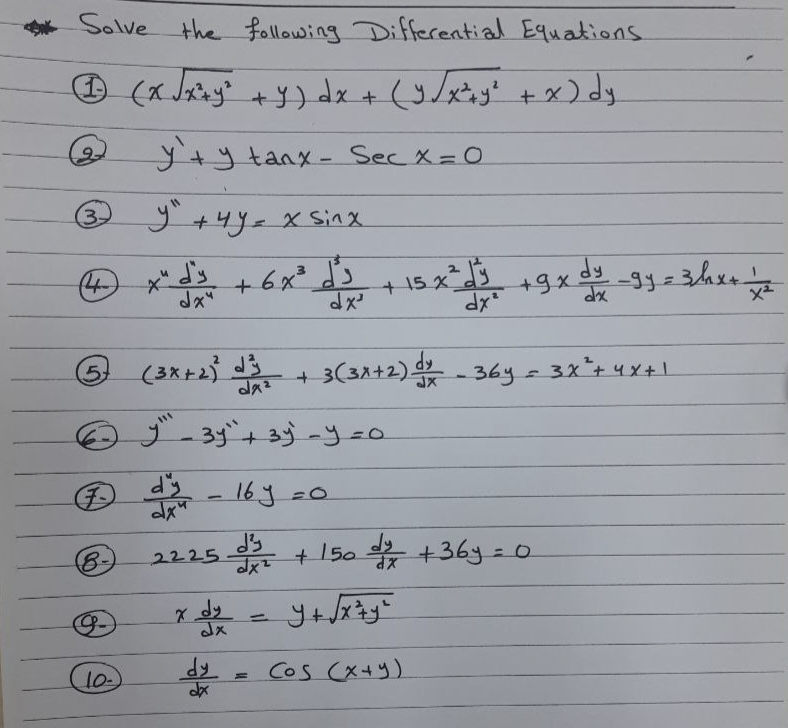 Solve the following Differential Equations
1- (x √x²+y² + y) dx + (y √x²+y² + x) dy
2- y' + y tanx - Sec x = 0
3- y'' + 4y = x Sinx
4- x⁴ d⁴y/dx⁴ + 6x³ d³y/dx³ + 15x² d²y/dx² + 9x dy/dx - 9y = 3lnx + 1/x²
5- (3x+2)² d²y/dx² + 3(3x+2) dy/dx - 36y = 3x² + 4x + 1
6- y''' - 3y'' + 3y' - y = 0
7- d⁴y/dx⁴ - 16y = 0
8- 2225 d²y/dx² + 150 dy/dx + 36y = 0
9- x dy/dx = y + √x²+y²
10- dy/dx = Cos (x+y)